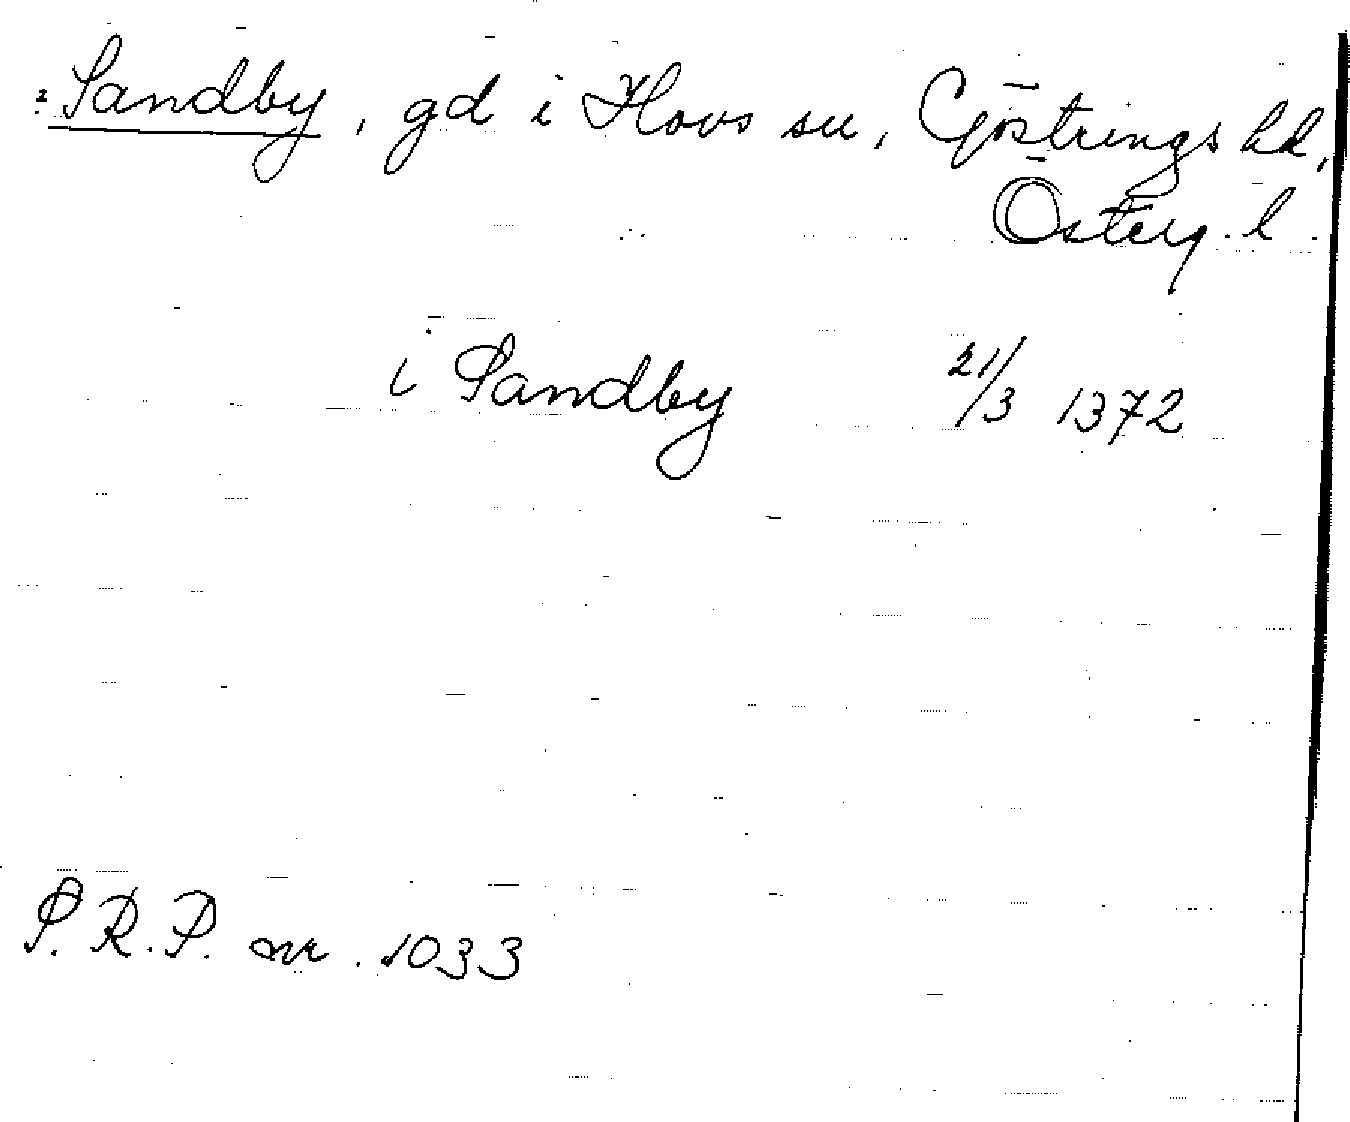 : Sandby, gd i Hovs sn, Göstrings hd,
Österg. l.
i Sandby 21/3 1372
S.R.P. nr. 1033